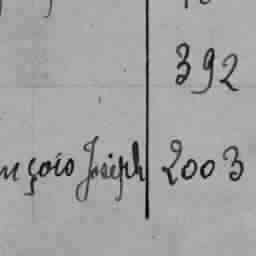 392
nçois Joseph 2003